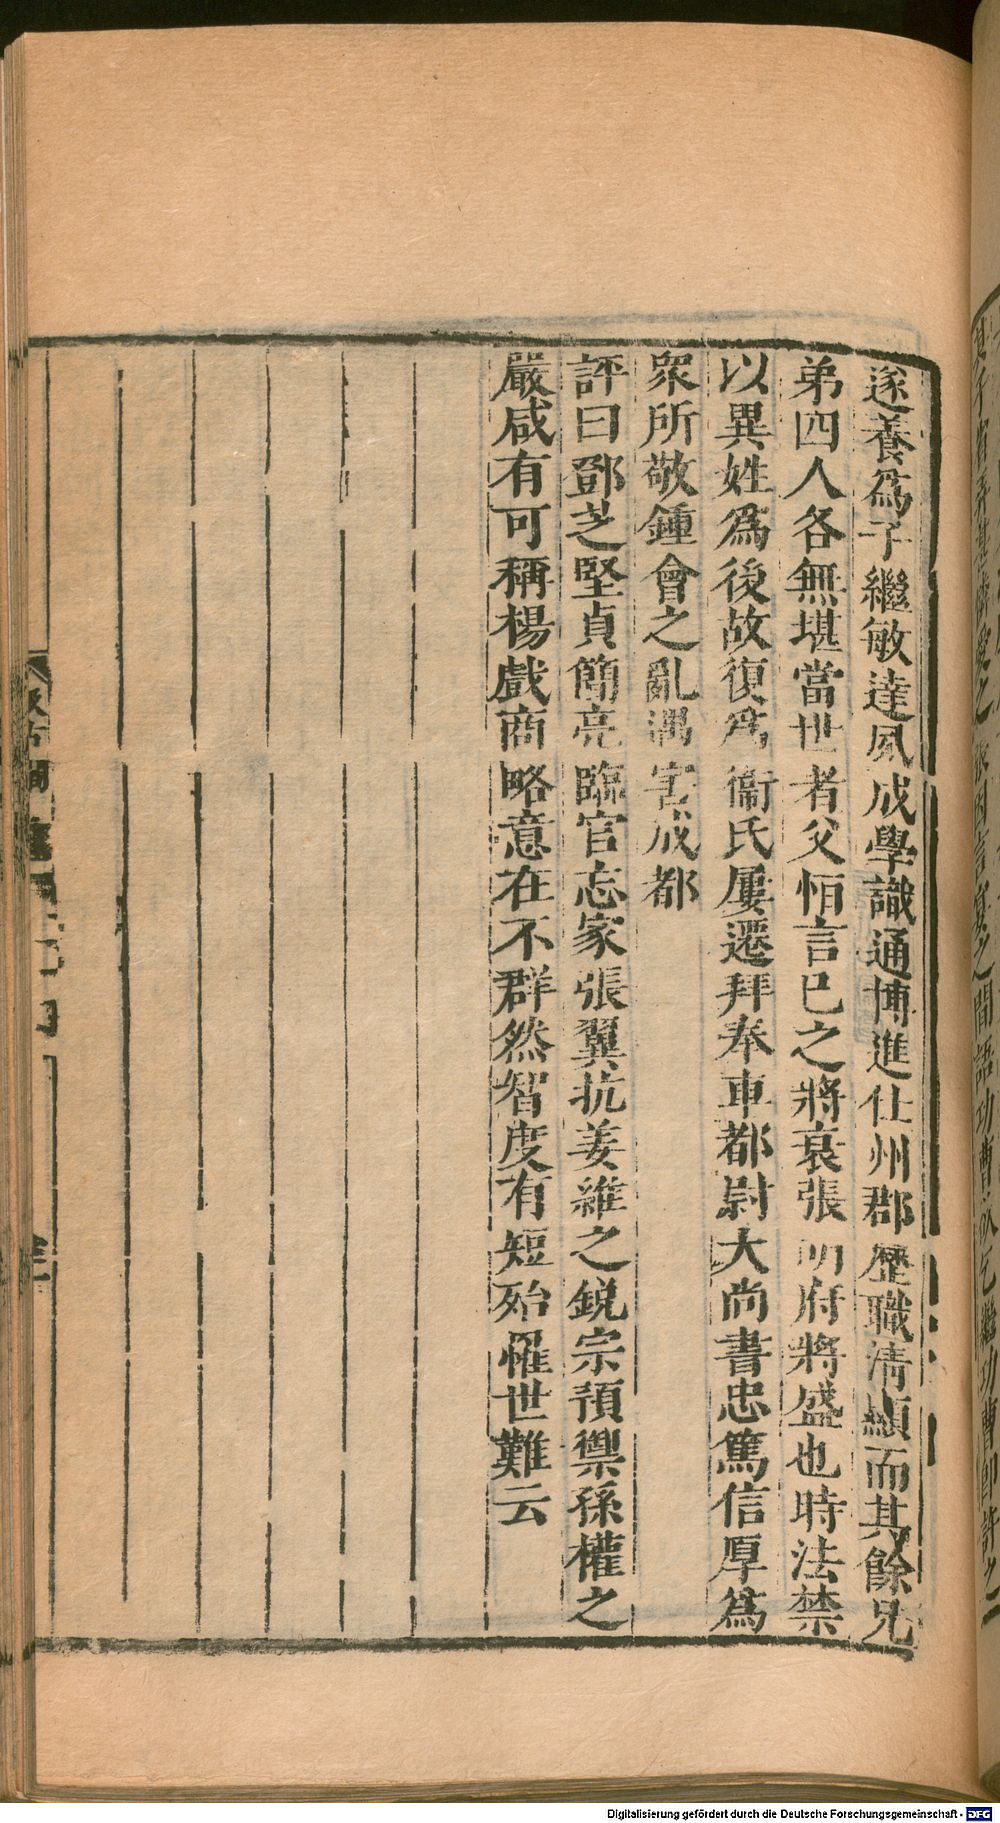 遂養爲子繼敏達夙成學識通博進仕州郡歷職清顯而其餘兄
弟四人各無堪當世者父恒言已之將衰張明府將盛也時法禁
以異姓爲後故復爲衞氏屢遷拜奉車都尉大尚書忠篤信厚爲
衆所敬鍾會之亂遇害成都
評曰鄧芝堅貞簡亮臨官忘家張翼抗姜維之銳宗預禦孫權之
嚴咸有可稱楊戲商略意在不群然智度有短殆罹世難云
Digitalisierung gefördert durch die Deutsche Forschungsgemeinschaft - DFG